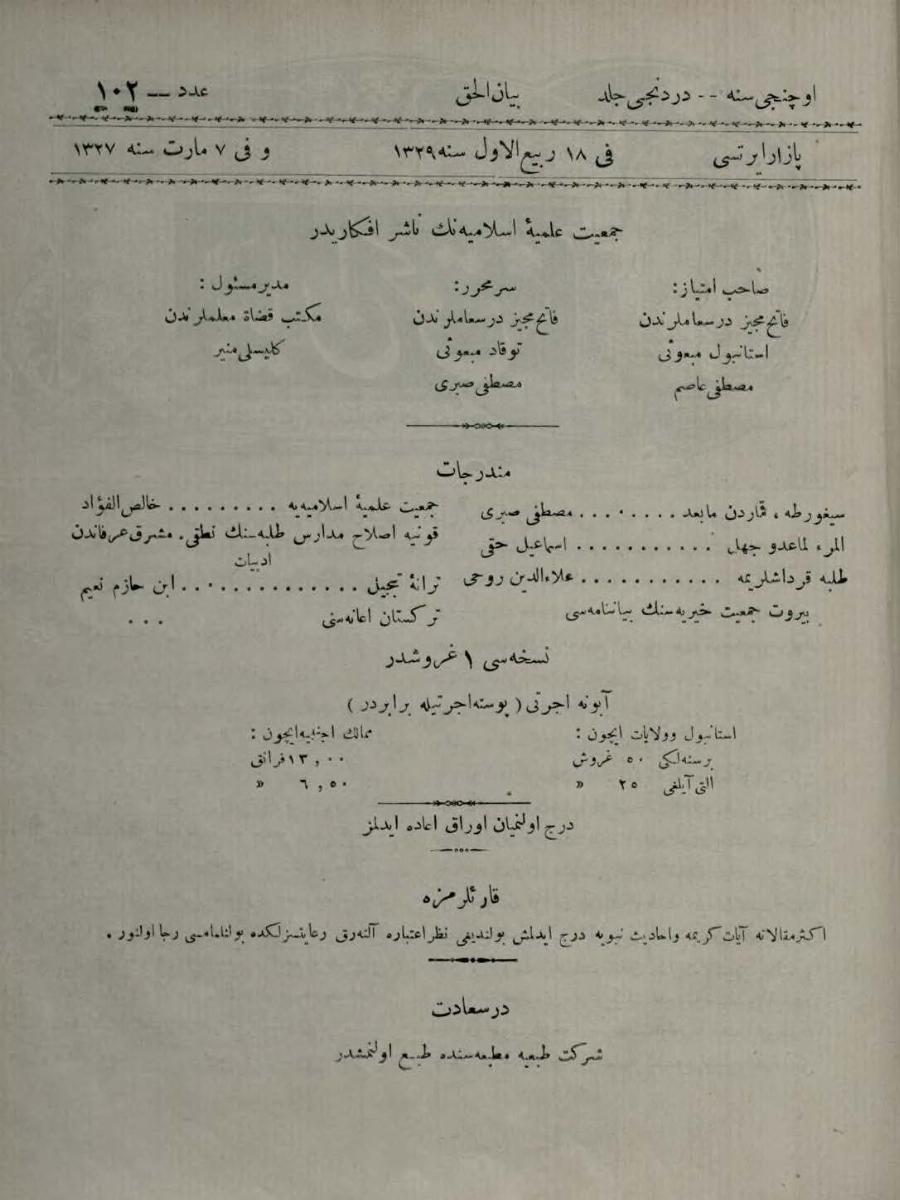 اوچنجی سنه -- دردنجی جلد بیان‌الحق عدد — ١٠٢
پازارایرتسی فی ١٨ ربیع‌الاول سنه ١٣٢٩ و فی ٧ مارت سنه ١٣٢٧
جمعیت علمیهٔ اسلامیه‌نك ناشر افكاریدر
صاحب امتیاز :
فاتح مجیز درسعاملرندن
استانبول مبعوثی
مصطفی عاصم
سرمحرر :
فاتح مجیز درسعاملرندن
توقاد مبعوثی
مصطفی صبری
مدیر مسئول :
مكتب قضاة معلملرندن
كلیسلی منیر
مندرجات
سیغورطه ، قماردن مابعد . . . . . . . مصطفی صبری
المرء لماعدو جهل . . . . . . . . . . . اسماعیل حقی
طلبه قرداشلریمه . . . . . . . . . . . علاءالدین روحی
بیروت جمعیت خیریه‌سنك بیاننامه‌سی
جمعیت علمیهٔ اسلامیه‌یه . . . . . . . . . خالص‌الفؤاد
قونیه اصلاح مدارس طلبه‌سنك نطقی . مشرق عرفاندن
ادبیات
ترانهٔ تبجیل . . . . . . . . . . . . . ابن حازم نعیم
تركستان اعانه‌سی . . .
نسخه‌سی ١ غروشدر
آبونه اجرتی ( پوسته اجرتیله برابردر )
استانبول وولایات ایچون :
برسنه‌لكی ٥٠ غروش
التی آیلغی ٢٥ »
ممالك اجنبیه ایچون :
١٣,٠٠ فرانق
٦,٥٠ »
درج اولنمیان اوراق اعاده ایدلمز
قارئلرمزه
اكثر مقالاته آیات كریمه واحادیث نبویه درج ایدلمش بولندیغی نظر اعتباره آلنه‌رق رعایتسزلكده بولنلمامسی رجا اولنور .
درسعادت
شركت طبعیه مطبعه‌سنده طبع اولنمشدر